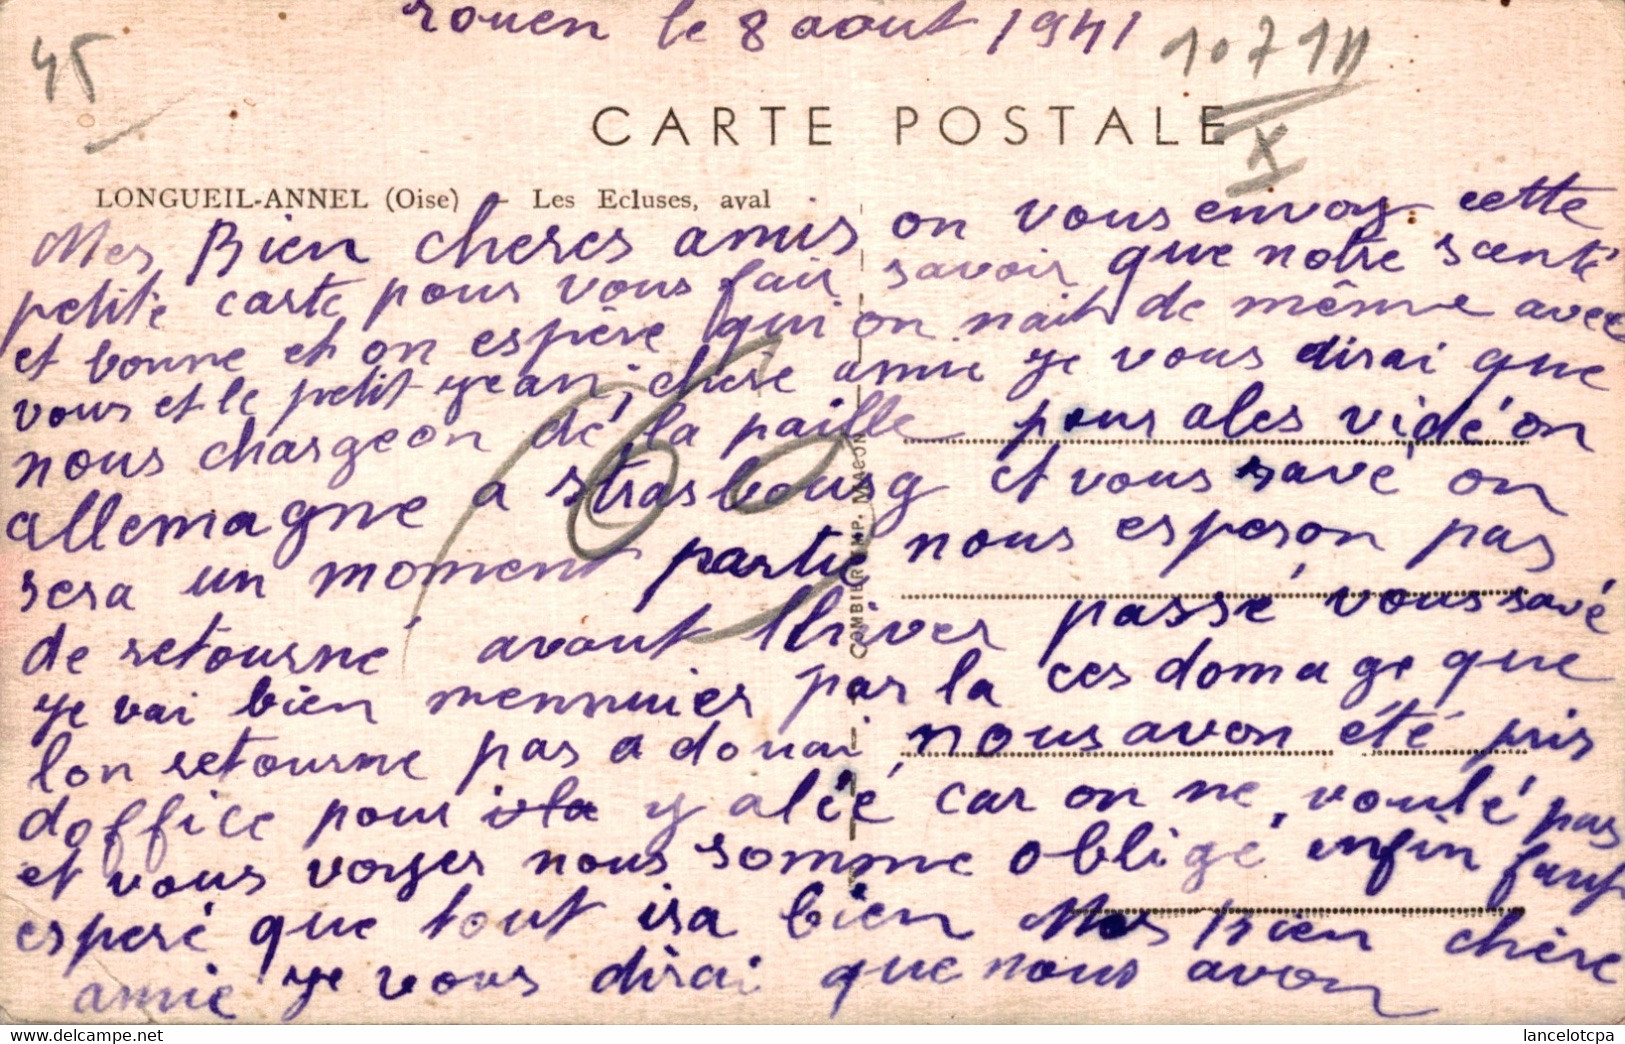 rouen le 8 aout 1941
45
10711
X
CARTE POSTALE
LONGUEIL-ANNEL (Oise) - Les Ecluses, aval
Mes Bien cheres amis on vous envoy cette
petite carte pour vous fair savoir que notre santé
et bonne et on espère qui on nait de même avec
vous et le petit yean, chère amie ye vous dirai que
nous chargeon dé la paille pour ales vidé on
allemagne a strasbourg et vous savé on
sera un moment partie nous esperon pas
de retourné avant lhiver passé vous savé
ye vai bien mennuier par la ces domage que
lon retourne pas a douai nous avon été pris
doffice pour y alié car on ne voulé pas
et vous voyer nous somme obligé enfin faut
esperé que tout ira bien Mes Bien chère
amie ye vous dirai que nous avon
COMBIER IMP. MACON
delcampe.net
lancelotcpa